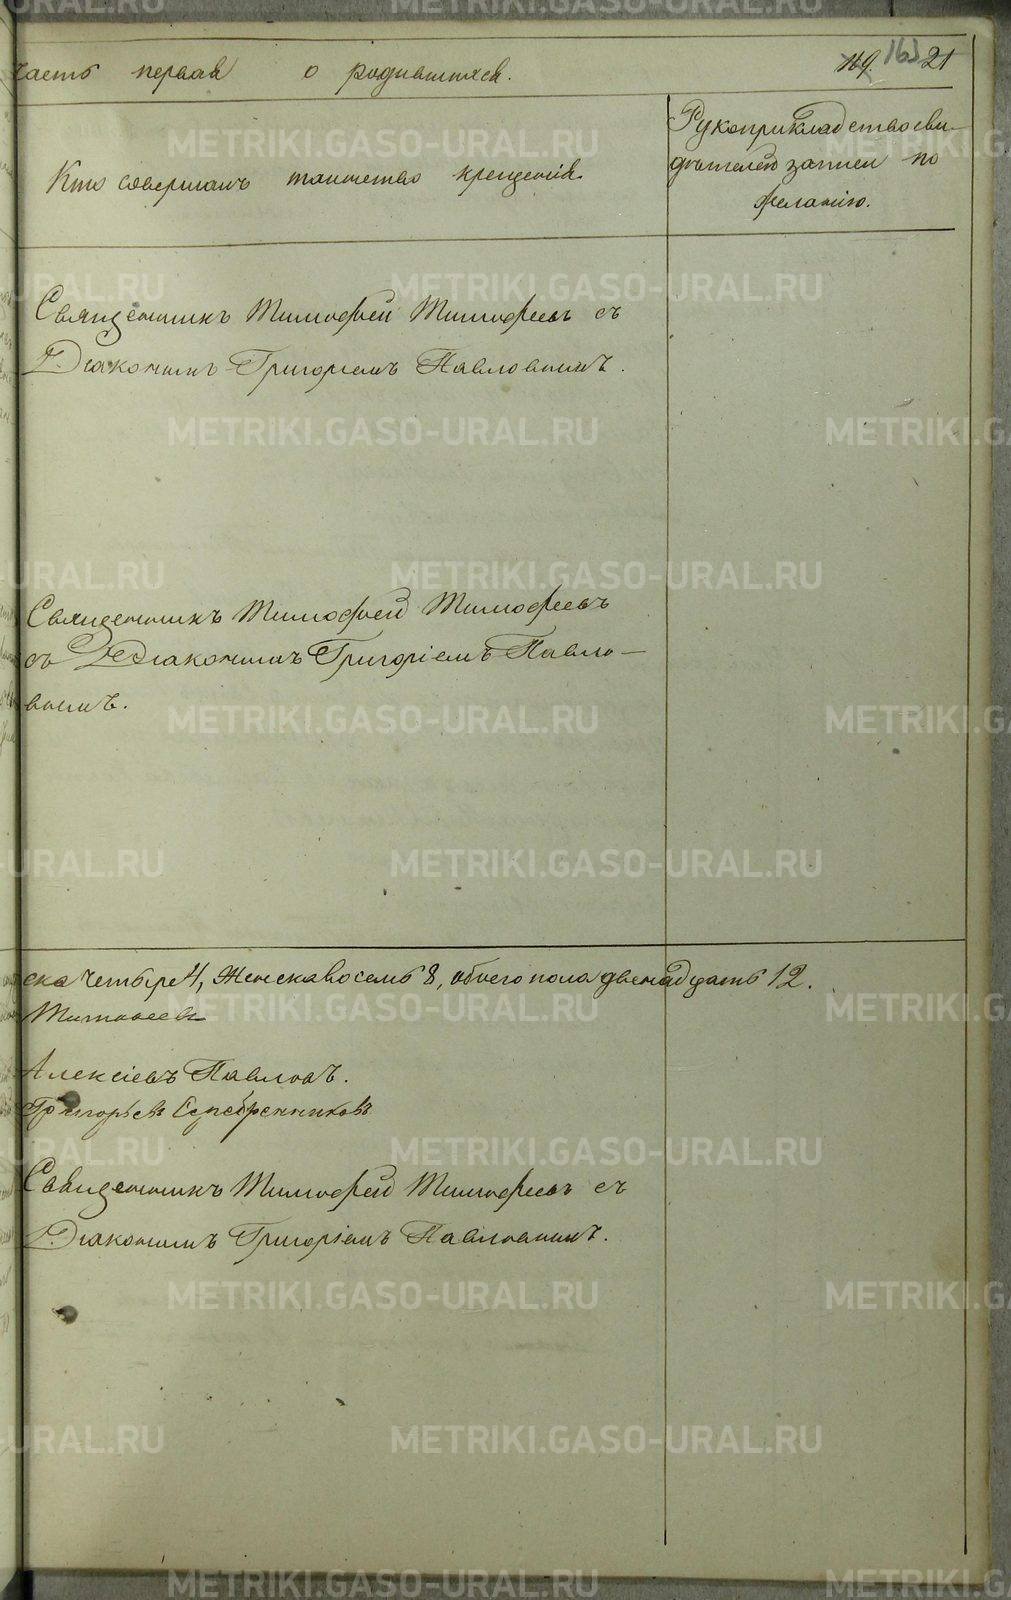 часть первая о родившихся.
119. 163 21
Кто совершалъ таинство крещенія.
Рукоприкладство сви-
дѣтелей записи по
желанію.
Священникъ Тимофей Тимофеевъ съ
Діакономъ Григоріемъ Павловымъ.
Священникъ Тимофей Тимофеевъ
съ Діакономъ Григоріемъ Павло-
вымъ.
ска четыре 4, Женска восемь 8, обоего пола двенадцать 12.
Тимофеевъ
Алексіевъ Павловъ.
Григорьевъ Серебренниковъ
Священникъ Тимофей Тимофеевъ съ
Діакономъ Григоріемъ Павловымъ.
METRIKI.GASO-URAL.RU